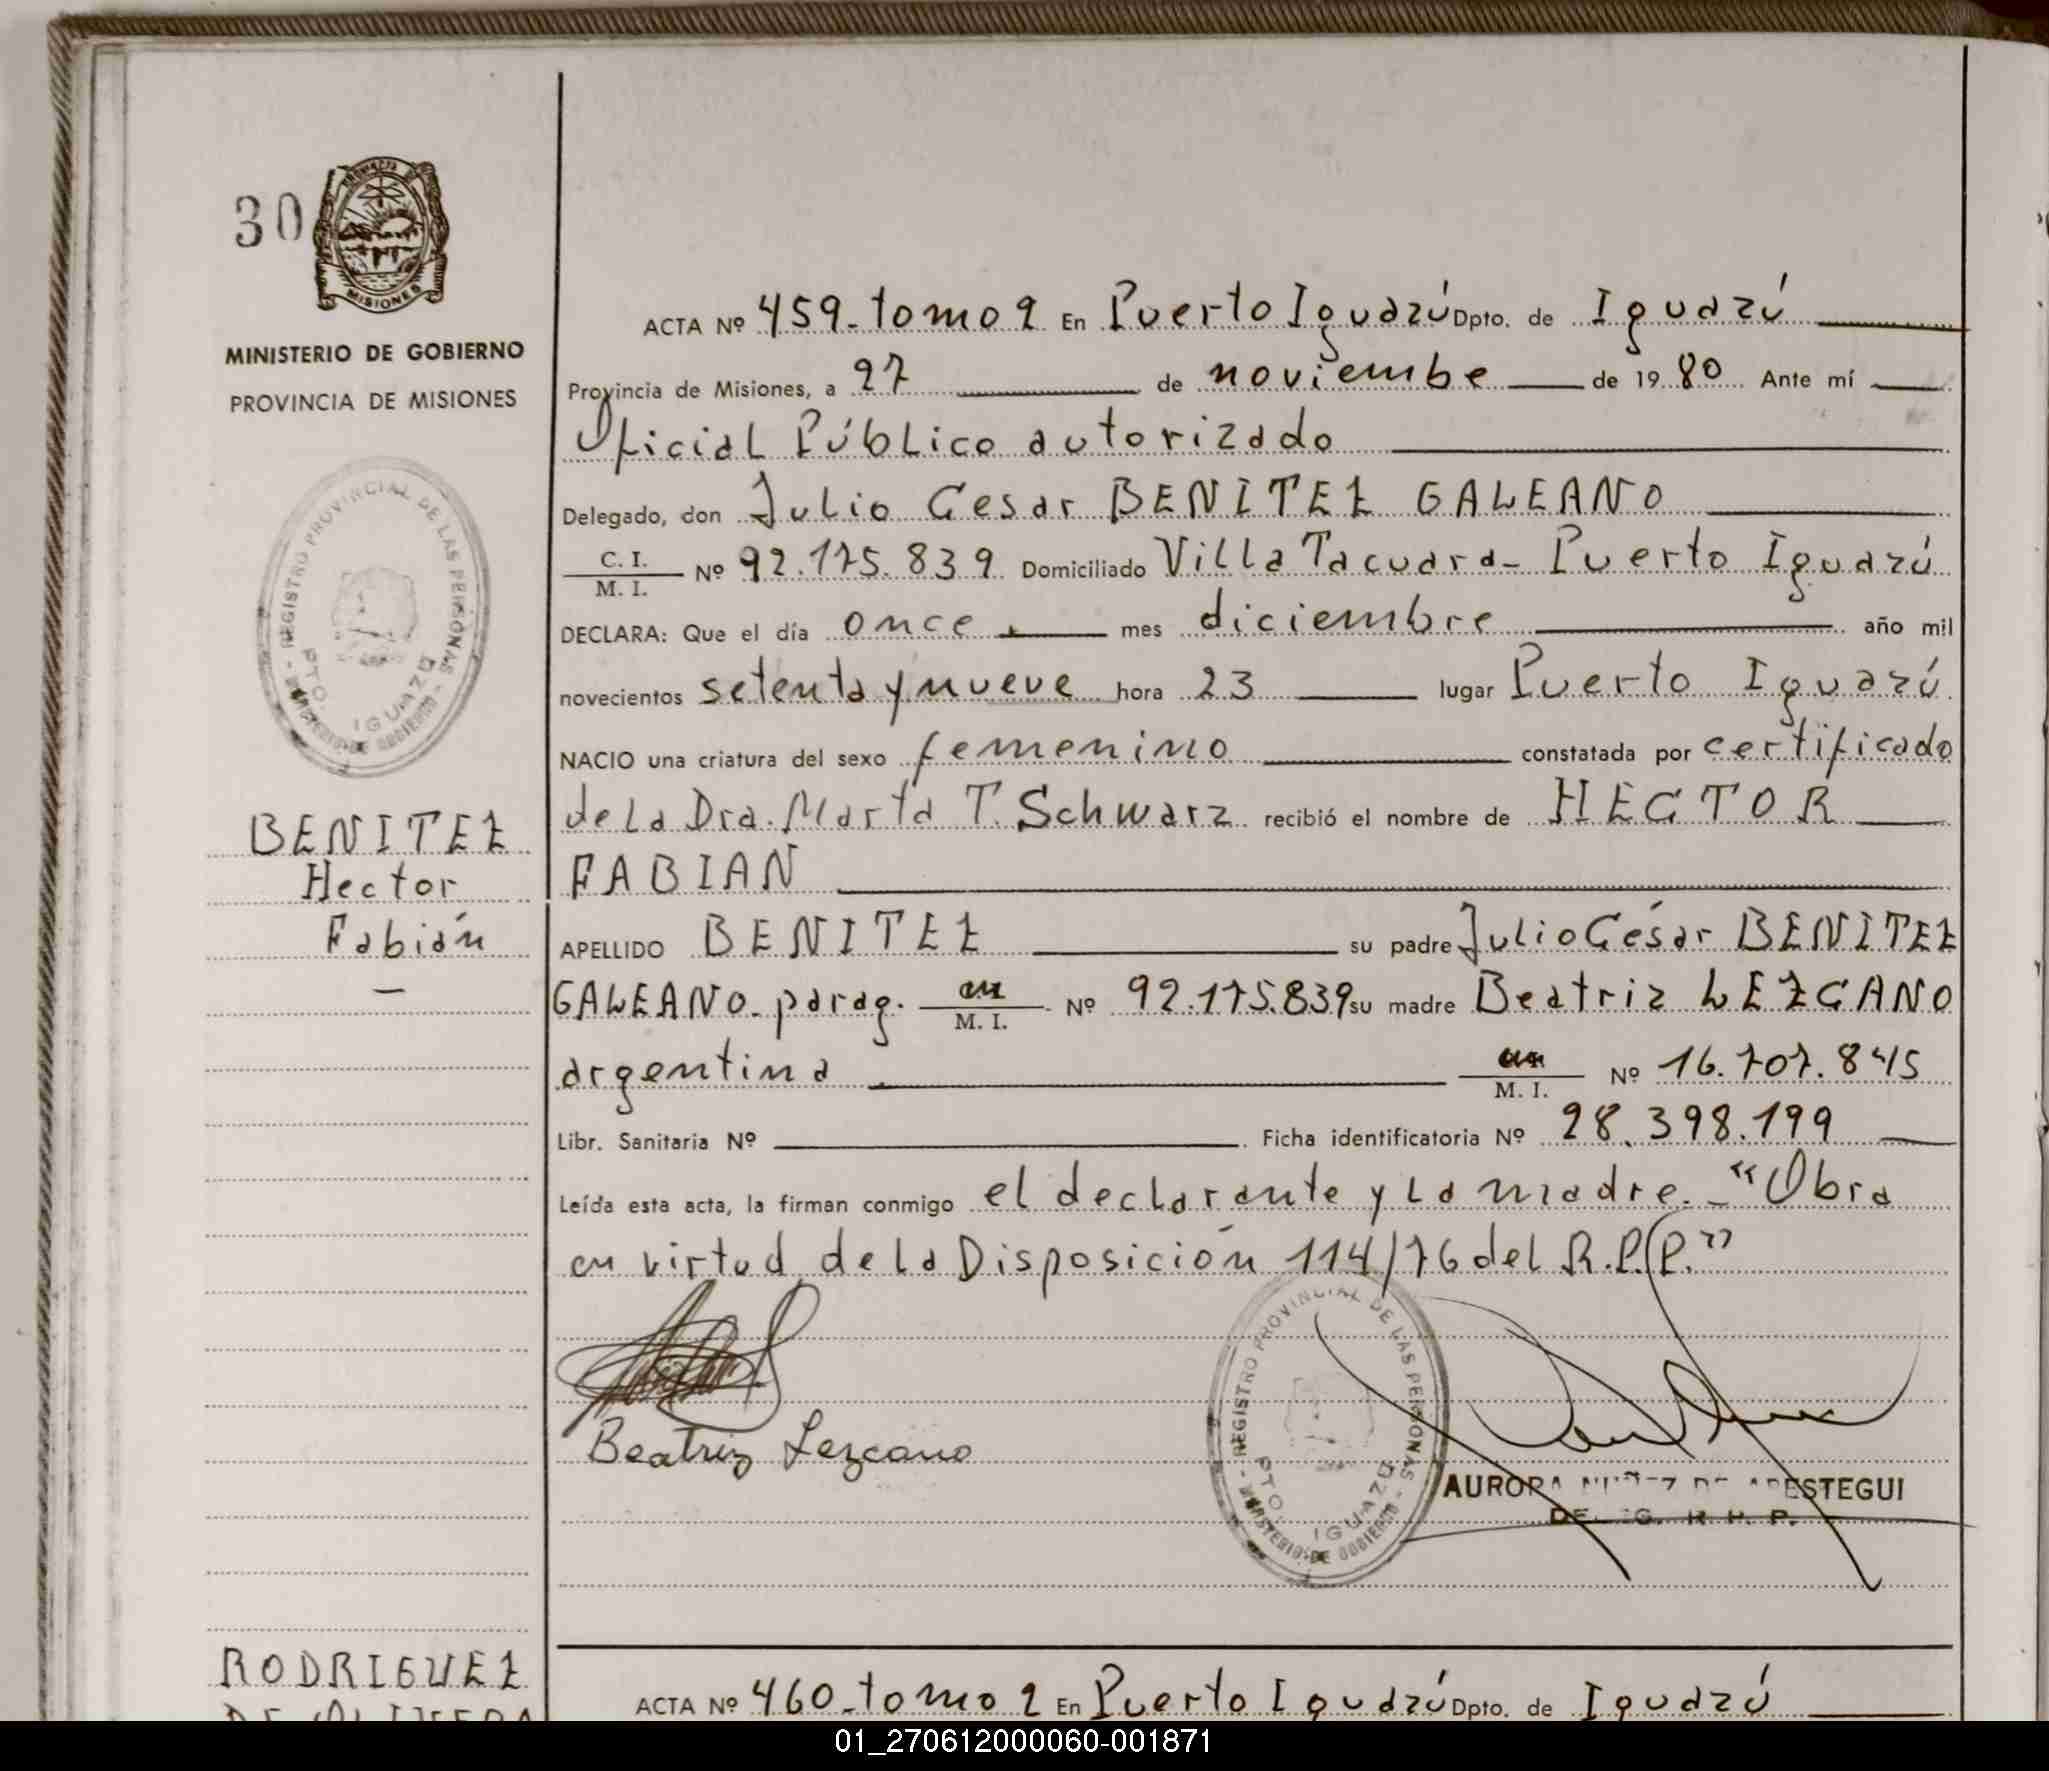 30
PROVINCIA
MISIONES
MINISTERIO DE GOBIERNO
PROVINCIA DE MISIONES
REGISTRO PROVINCIAL DE LAS PERSONAS - MINISTERIO DE GOBIERNO -
PTO. IGUAZU
BENITEZ
Hector
Fabián
—
ACTA Nº 459-tomo 2 En Puerto Iguazú Dpto. de Iguazú
Provincia de Misiones, a 27 de noviembe de 1980 Ante mí
Oficial Público autorizado
Delegado, don Julio Cesar BENITEZ GALEANO
C. I.
M. I. Nº 92.175.839 Domiciliado Villa Tacuara- Puerto Iguazú
DECLARA: Que el día once mes diciembre año mil
novecientos setenta y nueve hora 23 lugar Puerto Iguazú
NACIO una criatura del sexo femenino constatada por certificado
de la Dra. Marta T. Schwarz recibió el nombre de HECTOR
FABIAN
APELLIDO BENITEZ su padre Julio César BENITEZ
GALEANO- parag. M. I. Nº 92.175.839 su madre Beatriz LEZCANO
argentina M. I. Nº 16.707.845
Libr. Sanitaria Nº Ficha identificatoria Nº 28.398.199
Leída esta acta, la firman conmigo el declarante y la madre.- "Obra
en virtud de la Disposición 114/76 del R.P.P."
Beatriz Lezcano
REGISTRO PROVINCIAL DE LAS PERSONAS - MINISTERIO DE GOBIERNO -
PTO. IGUAZU
AURORA NUÑEZ DE ARESTEGUI
RODRIGUEZ
ACTA Nº 460-tomo 2 En Puerto Iguazú Dpto. de Iguazú
01_270612000060-001871